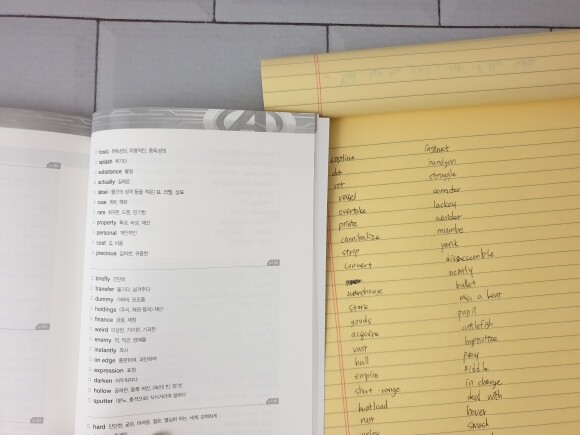 toxic 유독성의, 치명적인, 중독성의
splash 튀기다
substance 물질
actually 실제로
label (물건의 성격 등을 적은) 표, 라벨, 상표
ruse 계략, 책략
rare 희귀한, 드문, 진기한
property 특성, 속성, 재산
personal 개인적인
cost 값, 비용
precious 값비싼, 귀중한
briefly 간단히
transfer 옮기다, 넘겨주다
dummy 가짜의, 모조품
holdings (주식, 채권 등의) 재산
finance 금융, 재정
weird 이상한, 기이한, 기괴한
enemy 적, 적군, 장애물
instantly 즉시
on edge 흥분하여, 과민하여
expression 표정
darken 어두워지다
hollow
sputter (분노, 충격으로) 식식거리며 말하다
hard
costline
rot
vessel
overtake
pirate
cannibalize
strip
convert
warehouse
store
goods
acquire
vast
hull
empire
short range
boatload
rust
instruct
handgun
struggle
lackey
warden
yank
disassemble
neatly
bullet
miss a beat
pupil
cuttlefish
hypnotize
pray
fiddle
in charge
deal with
hover
smack